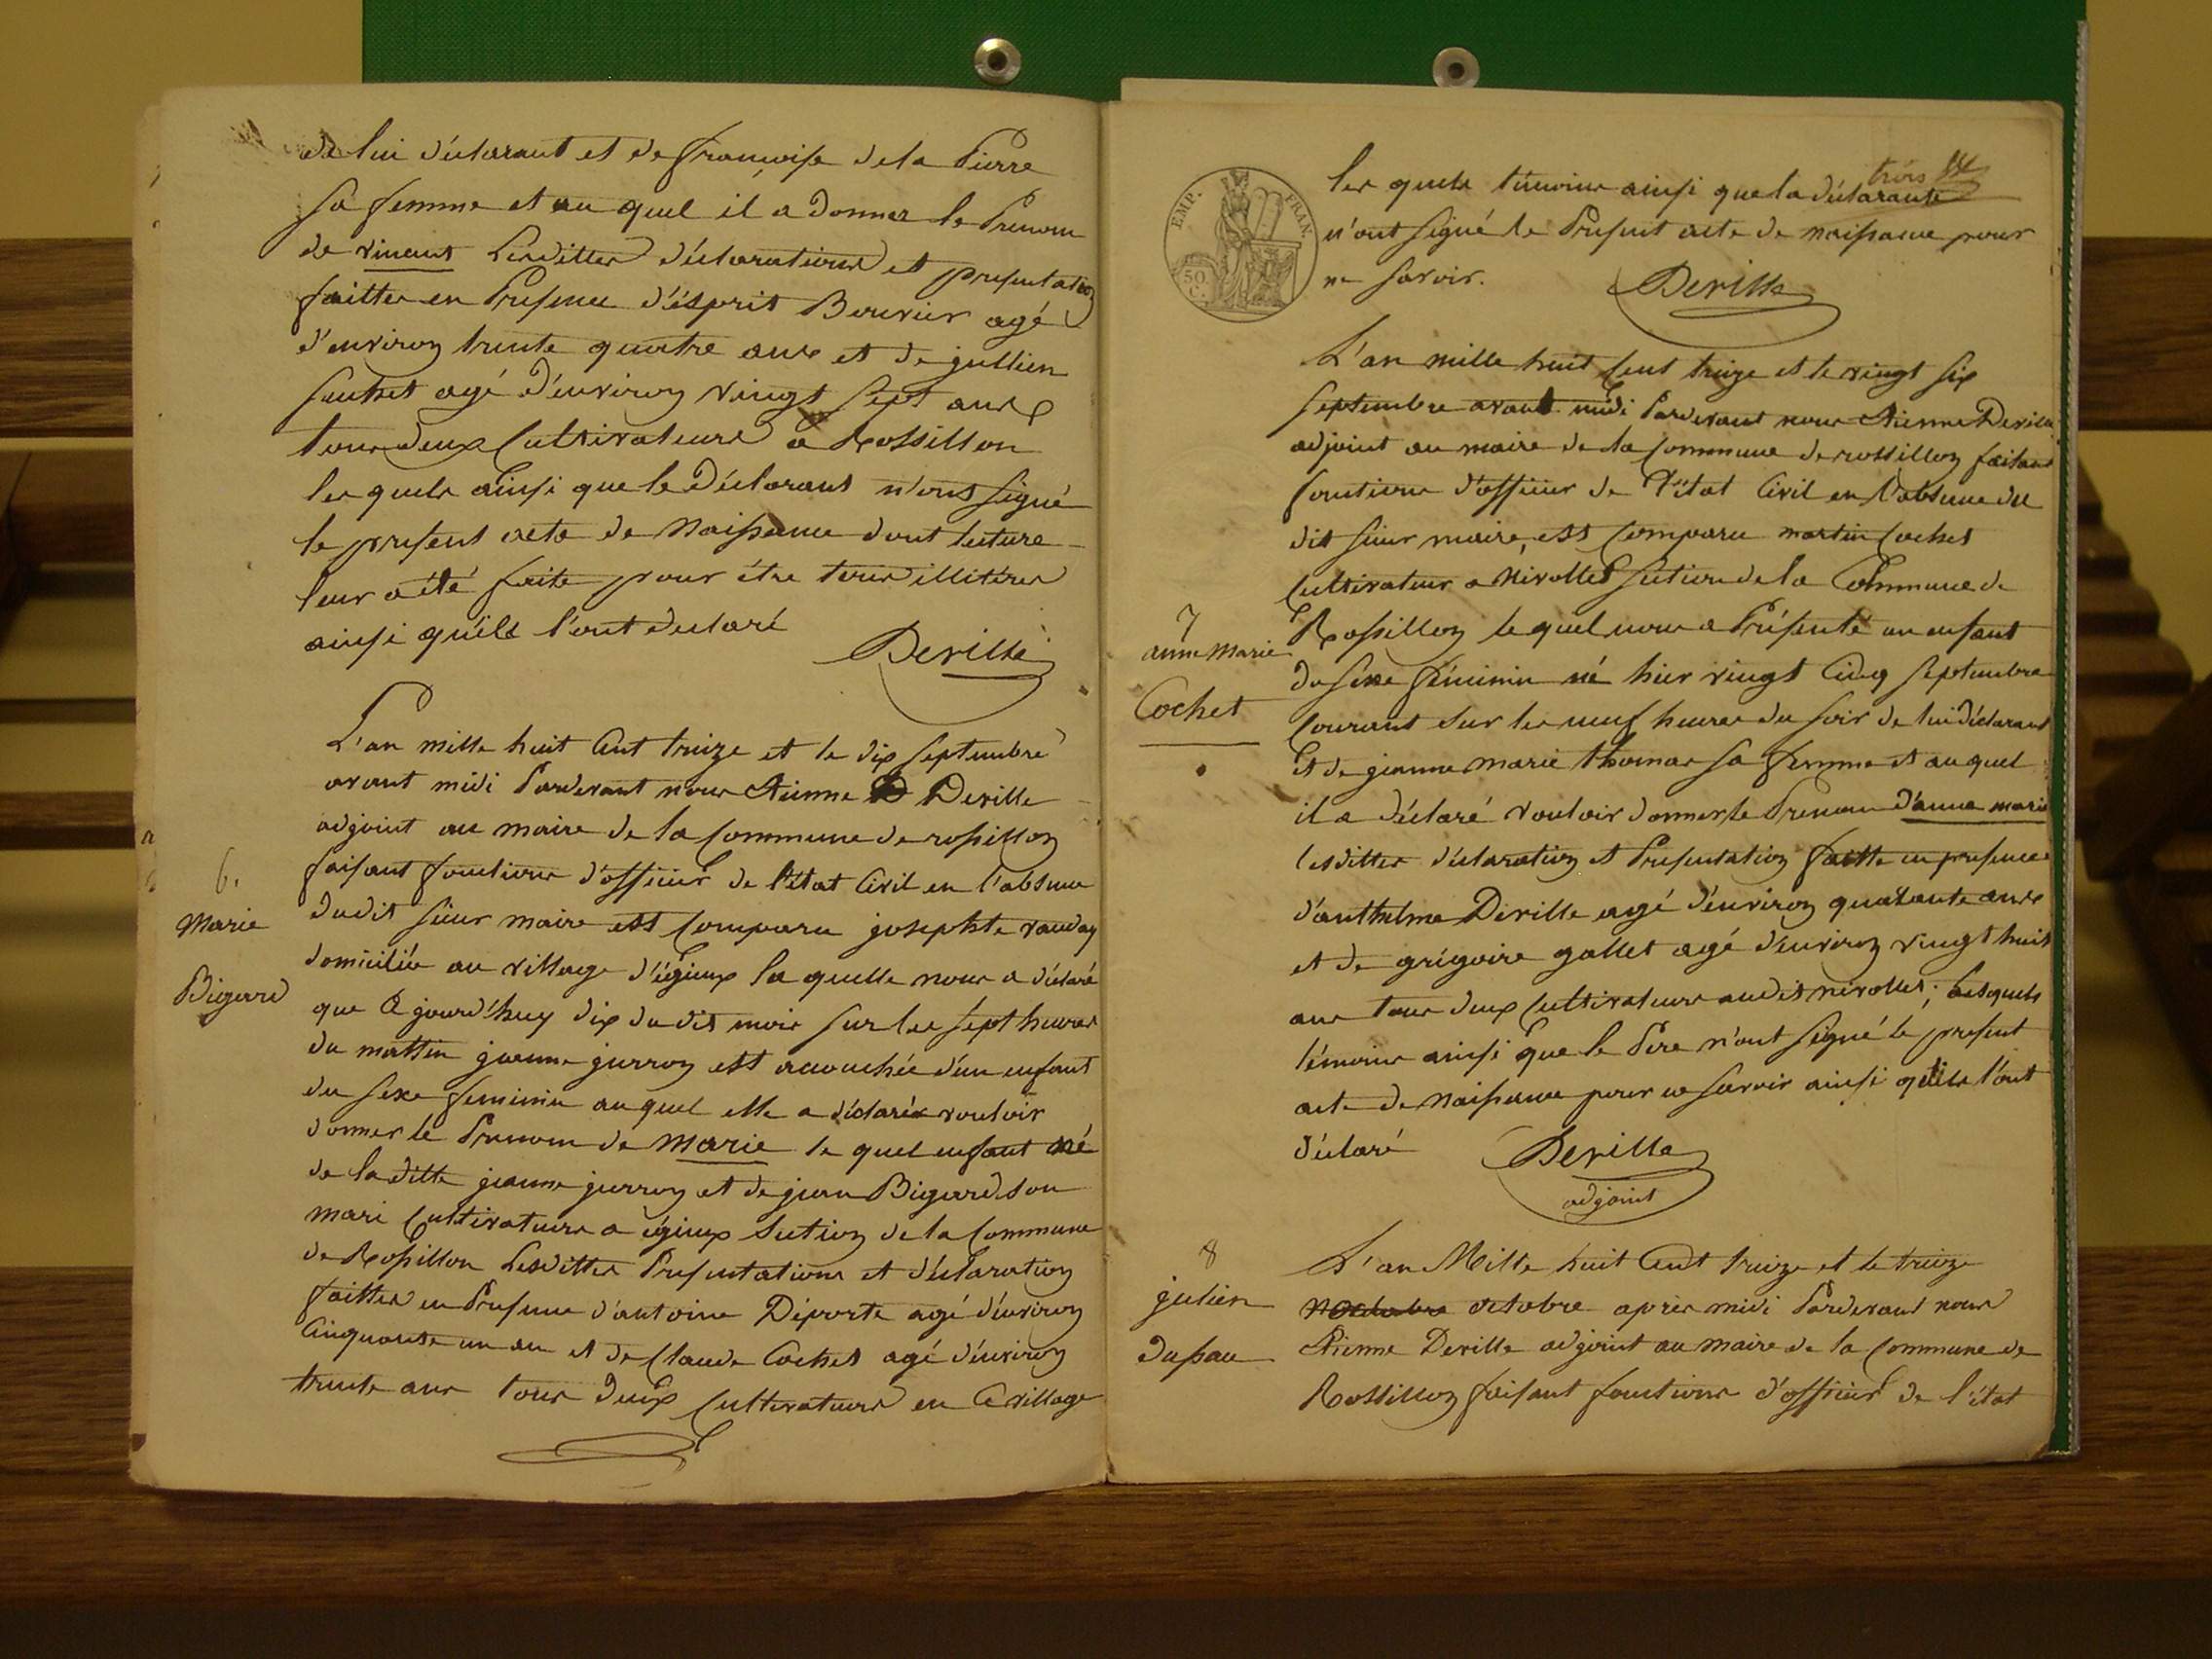 de lui déclarant et de françoise dela Pierre
sa femme et au quel il a donner le Prenom
de vincent Lesdittes déclarations et presentation
faittes en Presence d'ésprit Bouvier agé
d'environ trente quatre ans et de jullien
suchet agé d'environ vingt sept ans
tous deux Cultivateurs a Rossillon
les quels ainsi que le Déclarant n'ont signé
le present acte de Naissance dont lecture
leur a été faite pour être tous illitérés
ainsi qu'ils l'ont declaré
Deville
L'an mille huit Cent treize et le dix septembre
avant midi Pardevant nous Etienne Deville
adjoint au maire de la Commune de rossillon
faisant fonctions d'officier de l'état Civil en l'absence
dudit sieur maire est Comparu josephte
domiciliée au village d'égieux la quelle nous a déclaré
que Cejourd'huy dix dudit mois sur les sept heures
du mattin jeanne jurron est acouchée d'un enfant
du sexe feminin au quel elle a déclaré vouloir
donner le Prenom de Marie le quel enfant né
de la ditte jeanne jurron et de jean Bigard son
mari Cultivateurs a égieux Section de la Commune
de Rossillon Lesdittes Presentations et déclaration
faittes en Presence d'antoine Déporte agé d'environ
Cinquante un an et de Claude Cochet agé d'environ
trente ans tous deux Cultivateurs en Ce village
6.
Marie
Bigard
trois
EMP. FRAN.
50 C.
les quels témoins ainsi que la déclarante
n'ont signé le Present acte de naissance pour
ne savoir.
Deville
L'an mille huit Cent treize et le vingt six
septembre avant midi Pardevant nous Etienne Deville
adjoint au maire de la Commune de rossillon faisant
fonctions d'officier de l'état Civil en l'absence du
dit sieur maire, est Comparu martin Cochet
Cultivateur a Nivollet Section de la Commune de
Rossillon le quel nous a Présenté un enfant
du sexe féminin né hier vingt Cinq septembre
Courant sur les neuf heures du soir de lui déclarant
Et de jeanne marie thomas sa femme et au quel
il a déclaré vouloir donner le Prenom d'anne marie
lesdittes déclaration et Presentation faitte en presence
d'anthelme Deville agé d'environ quarante ans
et de grégoire gallet agé d'environ vingt huit
ans tous deux Cultivateurs audit nivollet; Lesquels
témoins ainsi que le Pere n'ont signé le present
acte de Naissance pour ne savoir ainsi qu'ils l'ont
déclaré
Deville
adjoint
7
anne Marie
Cochet
L'an Mille huit Cent treize et le treize
octobre après midi Pardevant nous
Etienne Deville adjoint au maire de la Commune de
Rossillon faisant fonctions d'officier de l'état
8
julien